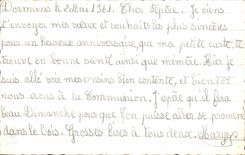 Dormans le 2 Mai 1961. Cher Père. Je viens
t'envoyer mes vœux et souhaits les plus sincères
pour un heureux anniversaire, que ma petite carte te
trouve en bonne santé ainsi que mémère. Hier je
suis allé voir mes cousins bien contents, et bientôt
nous irons à la Communion. J'espère qu'il fera
beau Dimanche pour que l'on puisse aller se promener
dans le bois. Grosses bises à tous deux.